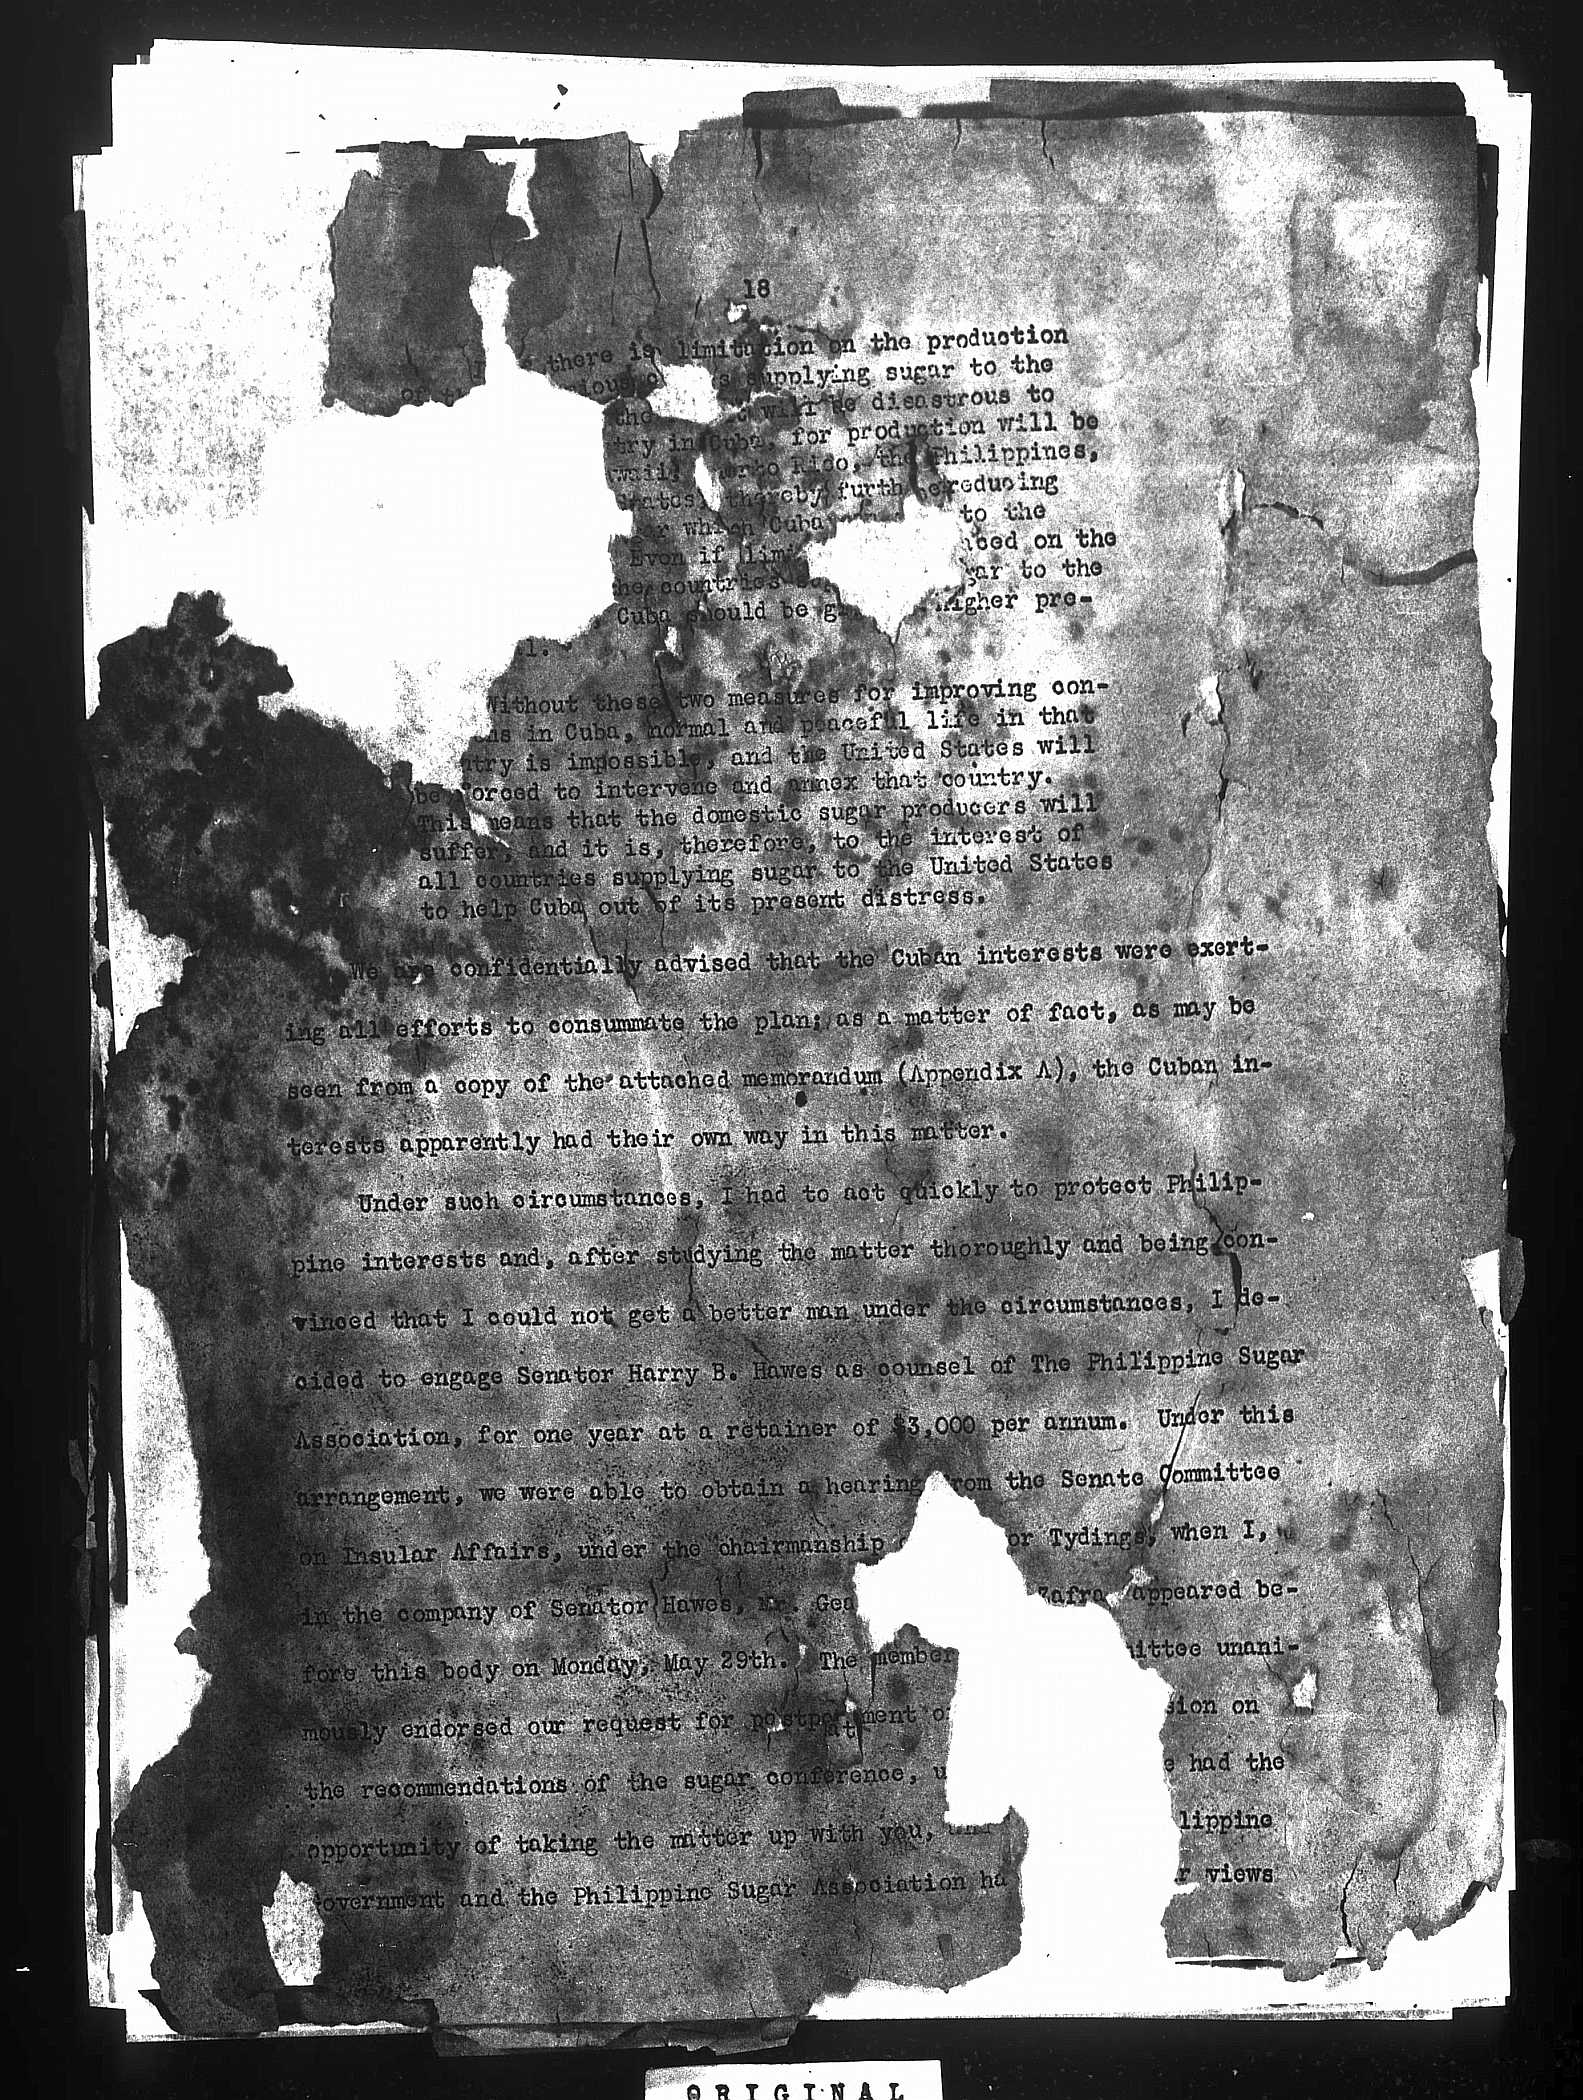 18
there is limitation on the production
supplying sugar to the
the will be disastrous to
in Cuba, for production will be
Rico, the Philippines,
thereby further reducing
which Cuba to the
Even if on the
countries to the
Cuba should be higher pre-
Without these two measures for improving con-
in Cuba, normal and peaceful life in that
is impossible, and the United States will
be forced to intervene and annex that country.
This means that the domestic sugar producers will
suffer, and it is, therefore, to the interest of
all countries supplying sugar to the United States
to help Cuba out of its present distress.
We are confidentially advised that the Cuban interests were exert-
ing all efforts to consummate the plan; as a matter of fact, as may be
seen from a copy of the attached memorandum (Appendix A), the Cuban in-
terests apparently had their own way in this matter.
Under such circumstances, I had to act quickly to protect Philip-
pine interests and, after studying the matter thoroughly and being con-
vinced that I could not get a better man under the circumstances, I de-
cided to engage Senator Harry B. Hawes as counsel of The Philippine Sugar
Association, for one year at a retainer of $3,000 per annum. Under this
arrangement, we were able to obtain a hearing from the Senate Committee
on Insular Affairs, under the chairmanship or Tydings, when I,
in the company of Senator Hawes, Mr. Zafra appeared be-
fore this body on Monday, May 29th. The member ittee unani-
mously endorsed our request for postponement on
the recommendations of the sugar conference, had the
opportunity of taking the matter up with you, and lippine
overnment and the Philippine Sugar Association views
ORIGINAL